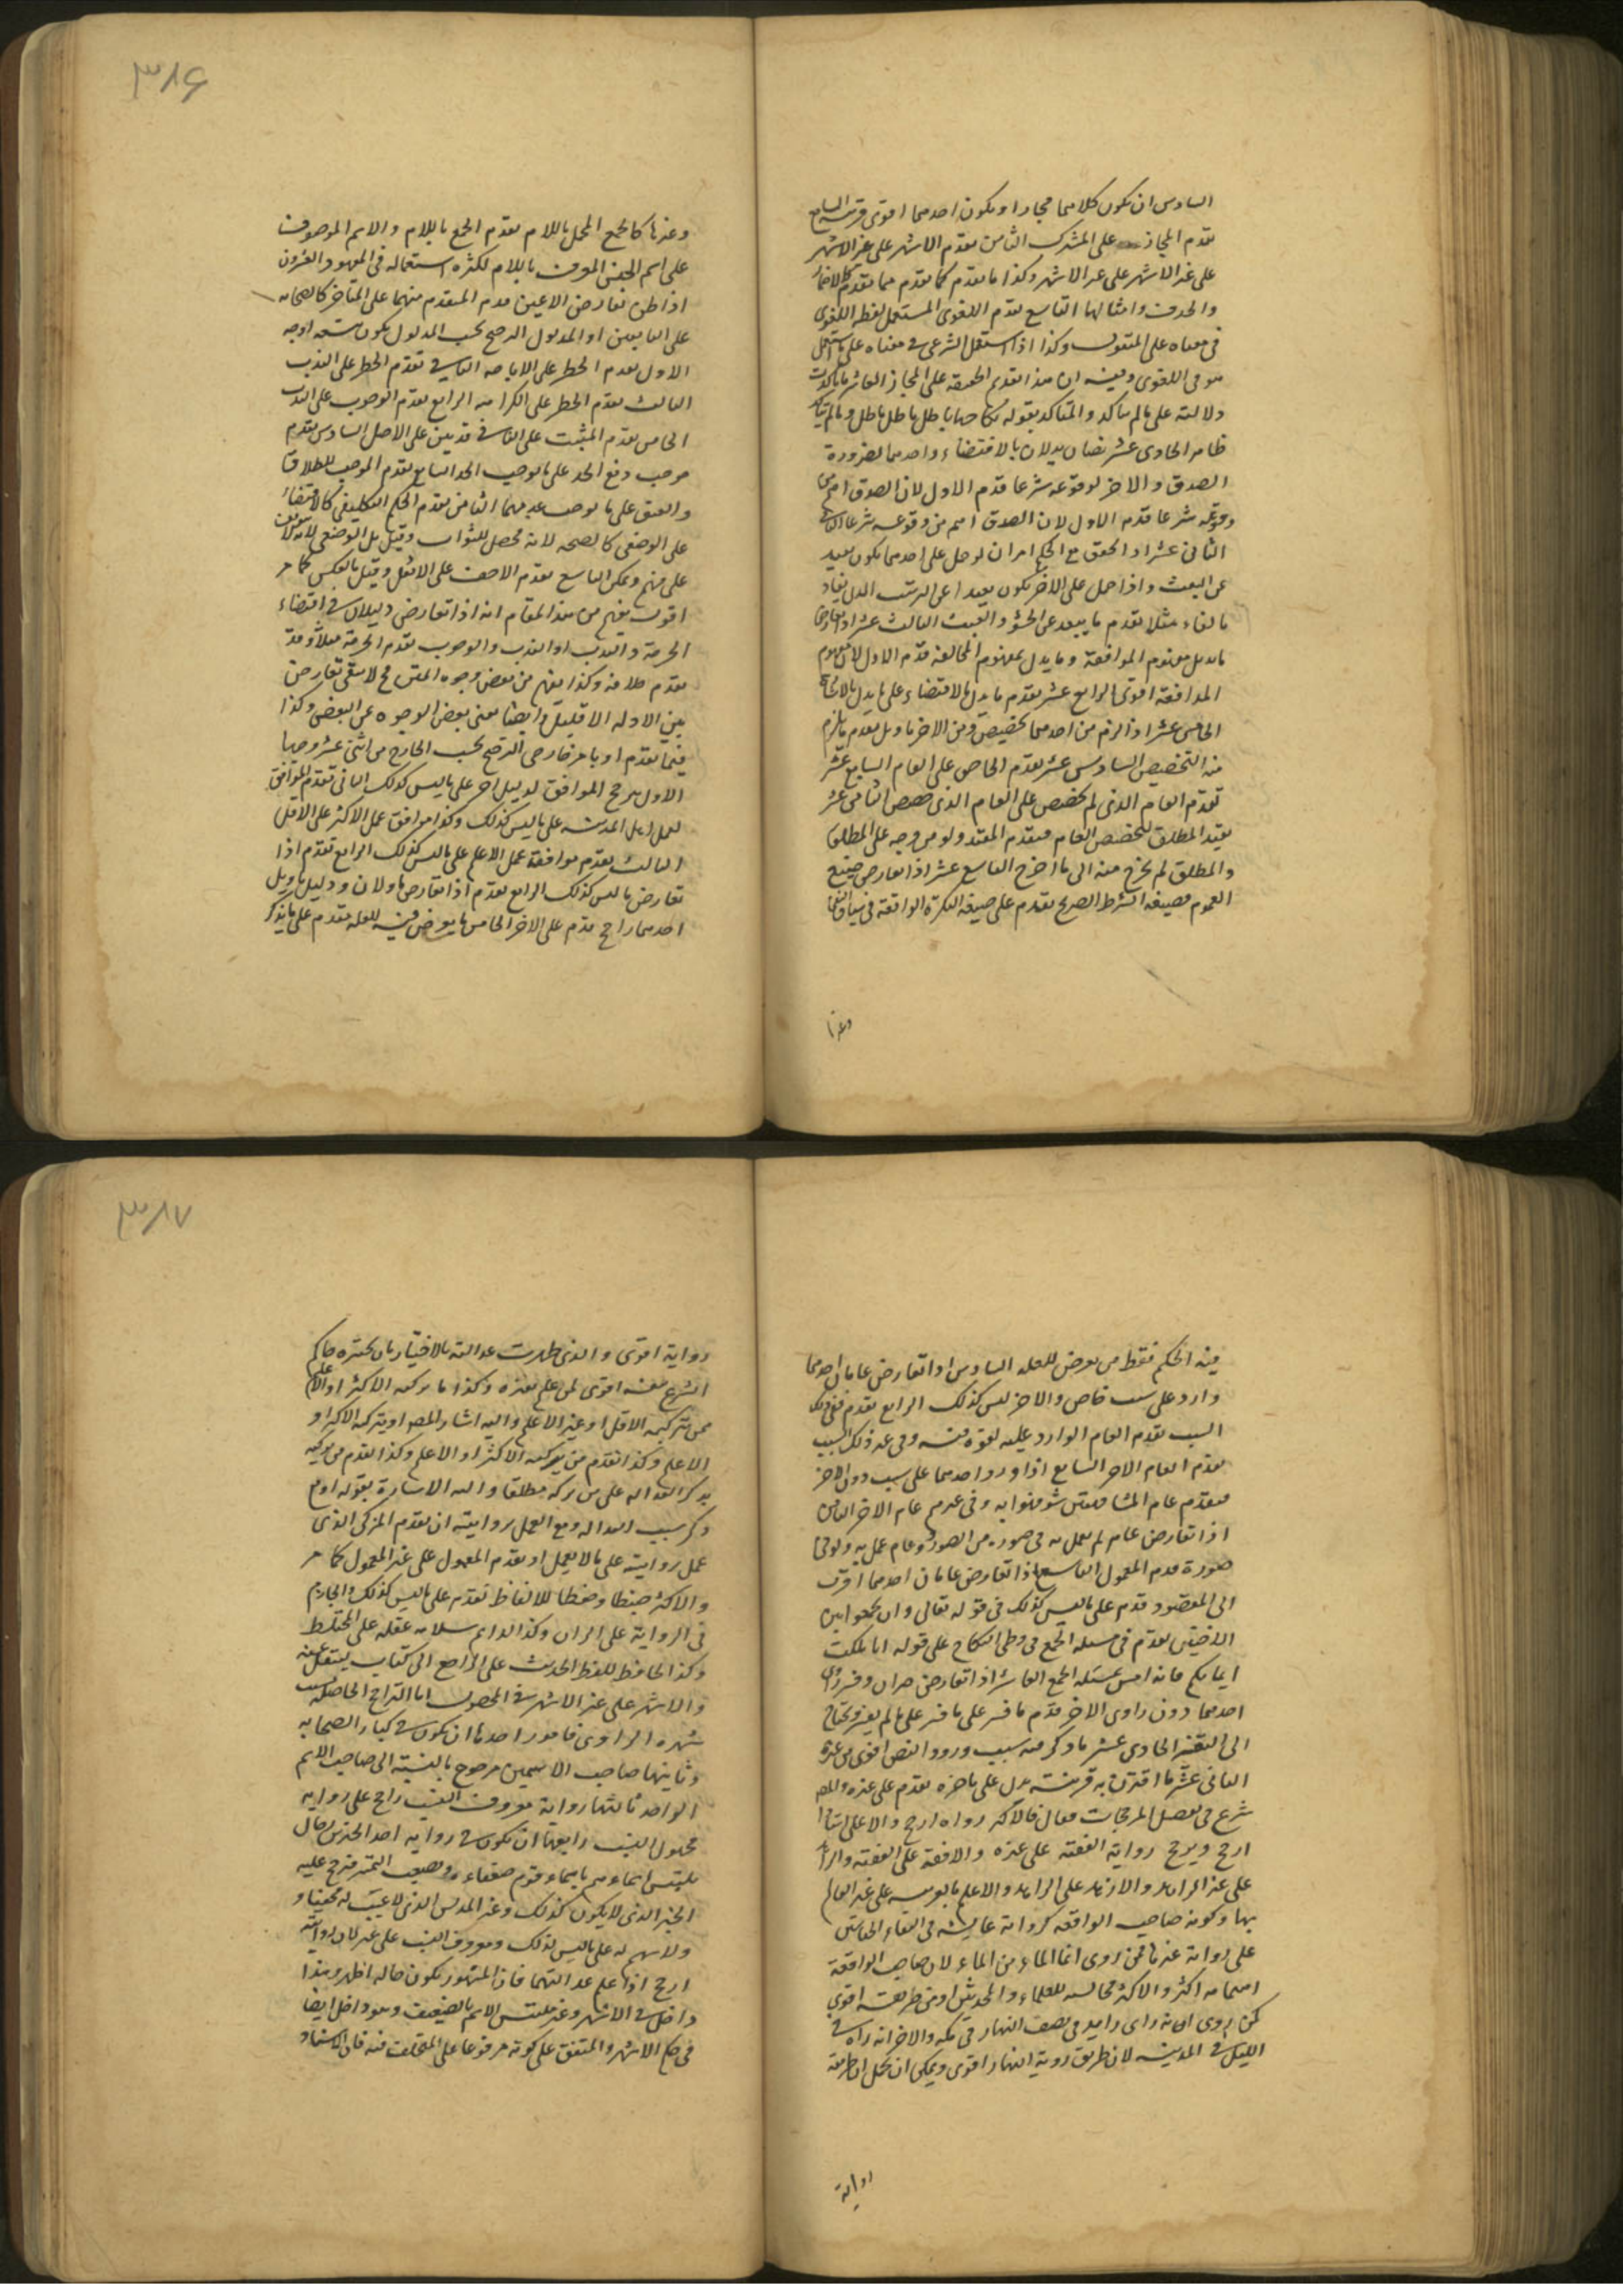 السادس ان يكون كلاهما مجازا ويكون احدهما اقوى قرينة السابع
تقدم المجاز على المشترك الثامن تقدم الاشهر على غير الاشهر
على غير الاشهر على غير الاشهر وكذا ما تقدم كما تقدم مما تقدم
والحذف وامثالها التاسع تقدم اللغوى المستعمل لفظه اللغوى
فى معناه على المنقول وكذا اذا استعمل الشرعى فى معناه على
هو فى اللغوى وفيه ان هذا تقدم الحقيقة على المجاز العاشر ما تأكدت
دلالته على ما لم يتأكد والمتأكد بقوله نكاحها باطل باطل باطل وما لم يتأكد
ظاهر الحادى عشر نصان يدلان بالاقتضاء واحدهما لضرورة
الصدق والاخر لوقوعه شرعا قدم الاول لان الصدق اهم من
وقوعه شرعا قدم الاول لان الصدق اهم من وقوعه شرعا
الثانى عشر اذا لحق مع الحكم امران لو حمل على احدهما يكون بعيد
عن البعث واذا حمل على الاخر يكون بعيدا عن
بالغاء مثلا تقدم ما يبعد عن الحشو والعبث الثالث عشر اذا تعارضا
ما يدل بمفهوم الموافقة وما يدل بمفهوم المخالفة قدم الاول لان مفهوم
الموافقة اقوى الرابع عشر تقدم ما يدل بالاقتضاء على ما يدل بالاشارة
الخامس عشر اذا لزم من احدهما تخصيص ومن الاخر تاويل تقدم ما يلزم
منه التخصيص السادس عشر تقدم الخاص على العام السابع عشر
تقدم العام الذى لم يخصص على العام الذى خصص الثامن عشر
تقيد المطلق كتخصيص العام فتقدم المقيد ولو من وجه على المطلق
والمطلق لم يخرج منه الى ما اخرج التاسع عشر اذا تعارض صيغ
العموم فصيغة الشرط الصريح تقدم على صيغة النكرة الواقعة فى سياق
وغيرها
٣٨۶
وغيرها كالجمع المحلى باللام تقدم الجمع باللام والاسم الموصول
على اسم الجنس المعرف باللام لكثرة استعماله فى المعهود العشرون
اذا ظن تعارض الاجماعين قدم المتقدم منهما على المتأخر كالصحابة
على التابعين او المدلول الترجيح بحسب المدلول يكون تسعة اوجه
الاول تقدم الحظر على الاباحة الثانى تقدم الحظر على الندب
الثالث تقدم الحظر على الكراهة الرابع تقدم الوجوب على الندب
الخامس تقدم المثبت على النافى السادس تقدم
موجب دفع الحد على ما يوجب الحد السابع تقدم الموجب للطلاق
والعتق على ما يوجب عدمهما الثامن تقدم الحكم التكليفى كالاقتضاء
على الوضعى كالصحة لانه محصل للثواب وقيل بل الوضعى لانه لا يتوقف
على فهم وتمكن التاسع تقدم الاخف على الاثقل وقيل بالعكس كما مر
اقول يفهم من هذا المقام انه اذا تعارض دليلان فى اقتضاء
الحرمة والندب او الندب والوجوب تقدم الحرمة مثلا وقد
تقدم خلافه وكذا يفهم من بعض وجوه المتن فح لا يبقى تعارض
بين الادلة الا قليلا وايضا يغنى بعض الوجوه عن البعض وكذا
فيما تقدم او بامر خارجى الترجيح بحسب الخارج من اثنى عشر وجها
الاول يرجح الموافق لدليل اخر على ما ليس كذلك الثانى تقدم الموافق
لعمل اهل المدينة على ما ليس كذلك وكذا موافق عمل الاكثر على الاقل
الثالث تقدم موافقة عمل الاعلم على ما ليس كذلك الرابع تقدم اذا
تعارض ما ليس كذلك الرابع تقدم اذا تعارض مأولان ودليل تاويل
احدهما راجح قدم على الاخر الخامس ما يعرض فيه للعلة تقدم على ما يذكر
فيه الحكم فقط من تعرض للعلة السادس اذا تعارض عامان احدهما
وارد على سبب خاص والاخر ليس كذلك الرابع تقدم ففى ذلك
السبب تقدم العام الوارد عليه لقوة فيه وفى غير ذلك السبب
تقدم العام الاخر السابع اذا ورد احدهما على سبب دون الاخر
فتقدم عام المشافهة وفى غيرهم عام الاخر الثامن
اذا تعارض عام لم يعمل به فى صورة من الصور وعام عمل به ولو فى
صورة قدم المعمول التاسع اذا تعارض عامان احدهما اقرب
الى المقصود قدم على ما ليس كذلك فى قوله تعالى وان تجمعوا بين
الاختين تقدم فى مسئلة الجمع فى وطى النكاح على قوله او ما ملكت
ايمانكم فانه امس بمسئلة الجمع العاشر اذا تعارض خبران وفسر راوى
احدهما دون راوى الاخر قدم ما فسر على ما لم يفسر ويحتاج
الى التفسير الحادى عشر ما ذكر فيه سبب ورود النص اقوى من غيره
الثانى عشر ما اقترن به قرينة تدل على تاخره تقدم على غيره والمص
شرع فى تفصيل المرجحات فقال فالاكثر رواة ارجح والاعلى اسنادا
ارجح ويرجح رواية الفقيه على غيره والافقه على الفقيه والزاهد
على غير الزاهد والازهد على الزاهد والاعلم بالعربية على غير العالم
بها وكونه صاحب الواقعة كرواية عايشة فى التقاء الختانين
على رواية غيرها فمن روى انما الماء من الماء لان صاحب الواقعة
اهتمامه اكثر والاكثر مجالسة للعلماء والمحدثين او من طريقه اقوى
كمن روى انه راى زيد فى نصف النهار فى مكة والاخر انه راه فى
الليل فى المدينة لان طريق روية النهار اقوى ويمكن ان يحمل ان طريقة
رواية
٣٨٧
رواية اقوى والذى ظهرت عدالته بالاختبار بان يختبره حاكم
الشرع اقوى لمن علم بغيره وكذا ما تزكيه الاكثر او الاعلم
ممن تزكيه الاقل او غير الاعلم واليه اشار المص او بتزكية الاكثر او
الاعلم وكذا تقدم من يزكيه الاكثر او الاعلم وكذا تقدم من يزكيه
بذكر العدالة على من يزكيه مطلقا واليه الاشارة بقوله او مع
ذكر سبب العدالة ومع العمل بروايته ان تقدم المزكى الذى
عمل بروايته على ما لا يعمل او تقدم المعمول على غير المعمول كما مر
والاكثر ضبطا وحفظا للالفاظ تقدم على ما ليس كذلك والجازم
فى الرواية على الظان وكذا الدائم سلامة عقله على المختلط
وكذا الحافظ للفظ الحديث على الراجع الى كتاب ينتقل عنه
والاشهر على غير الاشهر فى الحصول اما التراجيح الحاصلة بسبب
شهرة الراوى فامور احدها ان يكون من كبار الصحابة
وثانيها صاحب الاسمين مرجوح بالنسبة الى صاحب الاسم
الواحد ثالثها رواية معروف النسب راجح على رواية
مجهول النسب رابعها ان يكون فى رواية احد الخبرين رجال
يلتبس اسماءهم باسماء قوم ضعفاء ويصعب التميز فيرجح عليه
الخبر الذى لا يكون كذلك وغير المدلس الذى لا عيب له مخفيا و
ولا سهم له على ما ليس كذلك ومعروف النسب على غيره لان روايته
ارجح اذا علم عدالتهما فان المشهور يكون حاله اظهر وهذا
داخل فى الاشهر وغير ملتبس الاسم بالضعيف وهو داخل ايضا
فى حكم الاشهر والمتفق على كونه مرفوعا على المختلف فيه فان الاستناد